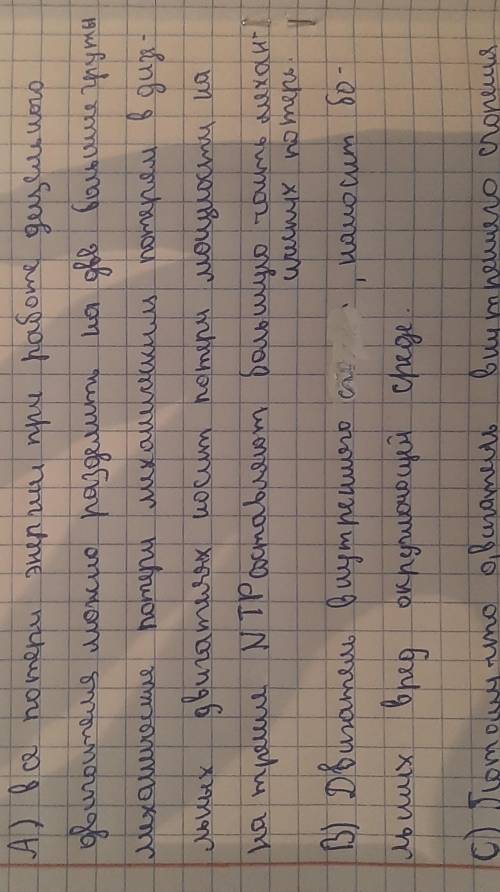 А) все потери энергии при работе дизельного
двигателя можно разделить на две большие группы
механические потери механическим потерям в диз-
ельных двигателях носит потери мощности на
на трение NТР составляют большую часть механ-
ических потерь.
В) Двигатель внутреннего , наносит бо-
льших вред окружающей среде.
С) Потому что двигатель внутреннего сгорения